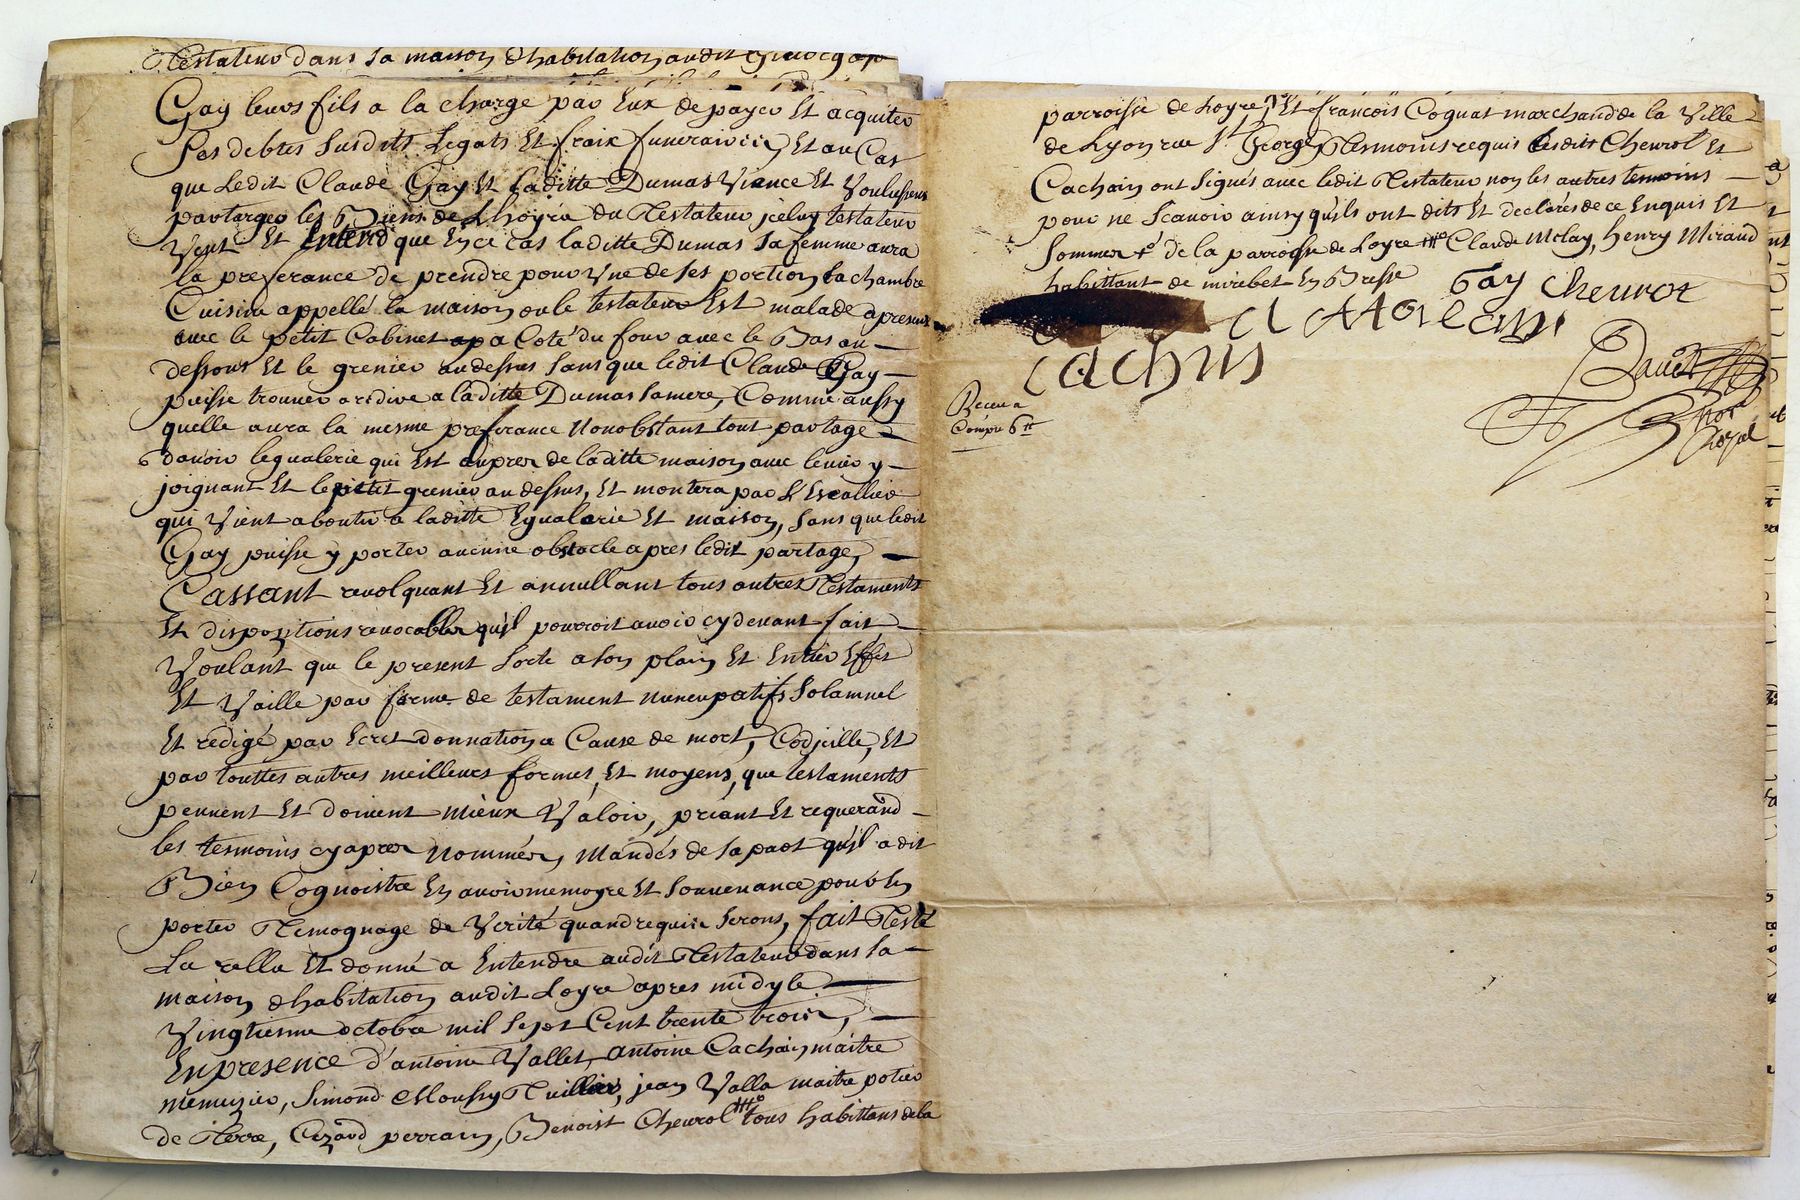 Testateur dans sa maison d'habitation audit
Gay leurs fils a la charge par Eux de payer Et acquiter
ses debtes susdits Legats Et fraix funeraires, Et au Cas
que Ledit Claude Gay Et laditte Dumas vience Et voulussent
partarger les Biens de Lhoyrie du Testateur jceluy testateur
veut Et Entend que En ce cas laditte Dumas sa femme aura
la preferance de prendre pour vne de ses portion la chambre
Cuisine appellé la maison ou le testateur Est malade apresent
avec le petit Cabinet a Coté du four avec le Bas au
dessous Et le grenier audessus sans que ledit Claude Gay
puisse trouver a redire a laditte Dumas sa mere, Comme aussy
quelle aura la mesme preferance Nonobstant tout partage
d'avoir legualerie qui Est aupres de laditte maison avec levier y
joignant Et le petit grenier au dessus, Et montera par L'Escallier
qui vient aboutir a laditte Egualerie Et maison, sans que ledit
Gay puisse y porter aucune obstacle apres ledit partage,
Cassant revolquant Et annullant tous autres Testaments
Et dispozitions revocables qu'jl pourroit avoir cydevant fait
Voulant que le present sorte a son plain Et Entier Effet
Et vaille par forme de testament nuncupatifs solamnel
Et redigé par Ecret donnation a Cause de mort, Codjcille, Et
par touttes autres meilleurs formes, Et moyens, que testaments
peuvent Et doivent mieux valoir, priant Et requerand
les tesmoins cy apres Nommés, Mandés de sa part qu'jl a dit
Bien Cognoistre En avoir memoyre Et souvenance pour En
porter Temognage de verité quand requis serons, fait Testé
La rellu Et donné a Entendre audit Testateur dans sa
maison d'habitation audit Loyre apres midy le
vingtiesme octobre mil sept Cent trente trois,
En presence d'antoine Vallet, antoine Cachain maitre
menuzier, Simond Moussy Tuillier, jean Valla maitre potier
de Terre, Cezard perrain, Benoist Cheurot tous habittans de la
parroisse de Loyre, Et françois Cognat marchand de la Ville
de Lyon rue St George Tesmoins requis lesdits Cheurot Et
Cachain ont signés avec ledit Testateur non les autres temoins
pour ne scavoir ainsy qu'jls ont dits Et declarés de ce Enquis Et
sommer de la parroisse de Loyre Claude Melay, henry Mirand
habittant de mirebet En Bresse
Gay Cheurot
Cachin
Receu a
Compte 6 tt
David
Nore
Royal